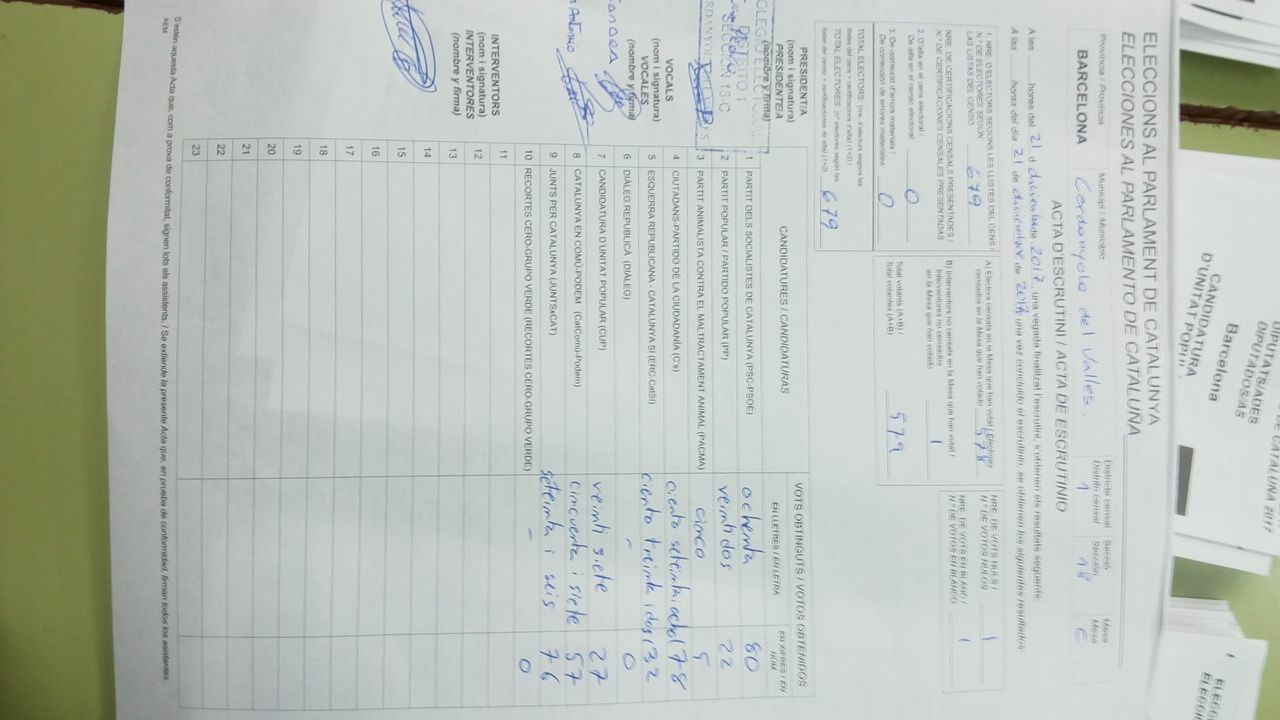 ELECCIONS AL PARLAMENT DE CATALUNYA
ELECCIONES AL PARLAMENTO DE CATALUÑA
Província / Provincia
Municipi / Municipio
Districte censal
Distrito censal
Secció
Sección
Mesa
Mesa
BARCELONA
Cerdanyola del Valles.
1
18
C
ACTA D'ESCRUTINI / ACTA DE ESCRUTINIO
A les ........ hores del 21 d diciembre 2017, una vegada finalitzat l'escrutini, s'obtenen els resultats següents:
A las ........ horas del día 21 de diciembre de 2017, una vez concluido el escrutinio, se obtienen los siguientes resultados:
1. NRE. D'ELECTORS SEGONS LES LLISTES DEL CENS /
N.º DE ELECTORES SEGÚN
LAS LISTAS DEL CENSO
679
NRE. DE CERTIFICACIONS CENSALS PRESENTADES /
N.º DE CERTIFICACIONES CENSALES PRESENTADAS
2. D'alta en el cens electoral /
De alta en el censo electoral
0
3. De correcció d'errors materials /
De corrección de errores materiales
0
TOTAL ELECTORS
TOTAL ELECTORES
679
A) Electors censats en la Mesa que han votat / Electores
censados en la Mesa que han votado
578
B) Interventors no censats en la Mesa que han votat /
Interventores no censados
en la Mesa que han votado
1
Total votants (A+B) /
Total votantes (A+B)
579
NRE. DE VOTS NULS /
N.º DE VOTOS NULOS
1
NRE. DE VOTS EN BLANC /
N.º DE VOTOS EN BLANCO
1
CANDIDATURES / CANDIDATURAS
VOTS OBTINGUTS / VOTOS OBTENIDOS
EN LLETRES / EN LETRA
EN XIFRES / EN NÚM.
1 PARTIT DELS SOCIALISTES DE CATALUNYA (PSC-PSOE) ochenta 80
2 PARTIT POPULAR / PARTIDO POPULAR (PP) veintidos 22
3 PARTIT ANIMALISTA CONTRA EL MALTRACTAMENT ANIMAL (PACMA) cinco 5
4 CIUTADANS-PARTIDO DE LA CIUDADANÍA (C's) ciento setenta i ocho 178
5 ESQUERRA REPUBLICANA - CATALUNYA SÍ (ERC-CatSí) ciento treinta i dos 132
6 DIÀLEG REPUBLICÀ (DIÀLEG) - 0
7 CANDIDATURA D'UNITAT POPULAR (CUP) veinti siete 27
8 CATALUNYA EN COMÚ-PODEM (CatComú-Podem) cincuenta i siete 57
9 JUNTS PER CATALUNYA (JUNTSxCAT) setenta i seis 76
10 RECORTES CERO-GRUPO VERDE (RECORTES CERO-GRUPO VERDE) - 0
11
12
13
14
15
16
17
18
19
20
21
22
23
PRESIDENT/A
(nom i signatura)
PRESIDENTE/A
(nombre y firma)
DISTRITO 1
VOCALS
(nom i signatura)
VOCALES
(nombre y firma)
Antonio
INTERVENTORS
(nom i signatura)
INTERVENTORES
(nombre y firma)
S'estén aquesta Acta que, com a prova de conformitat, signen tots els assistents. / Se extiende la presente Acta que, en prueba de conformidad, firman todos los asistentes.
DIPUTATS/ADES
DIPUTADOS/AS
Barcelona
CANDIDATURA
D'UNITAT POPU